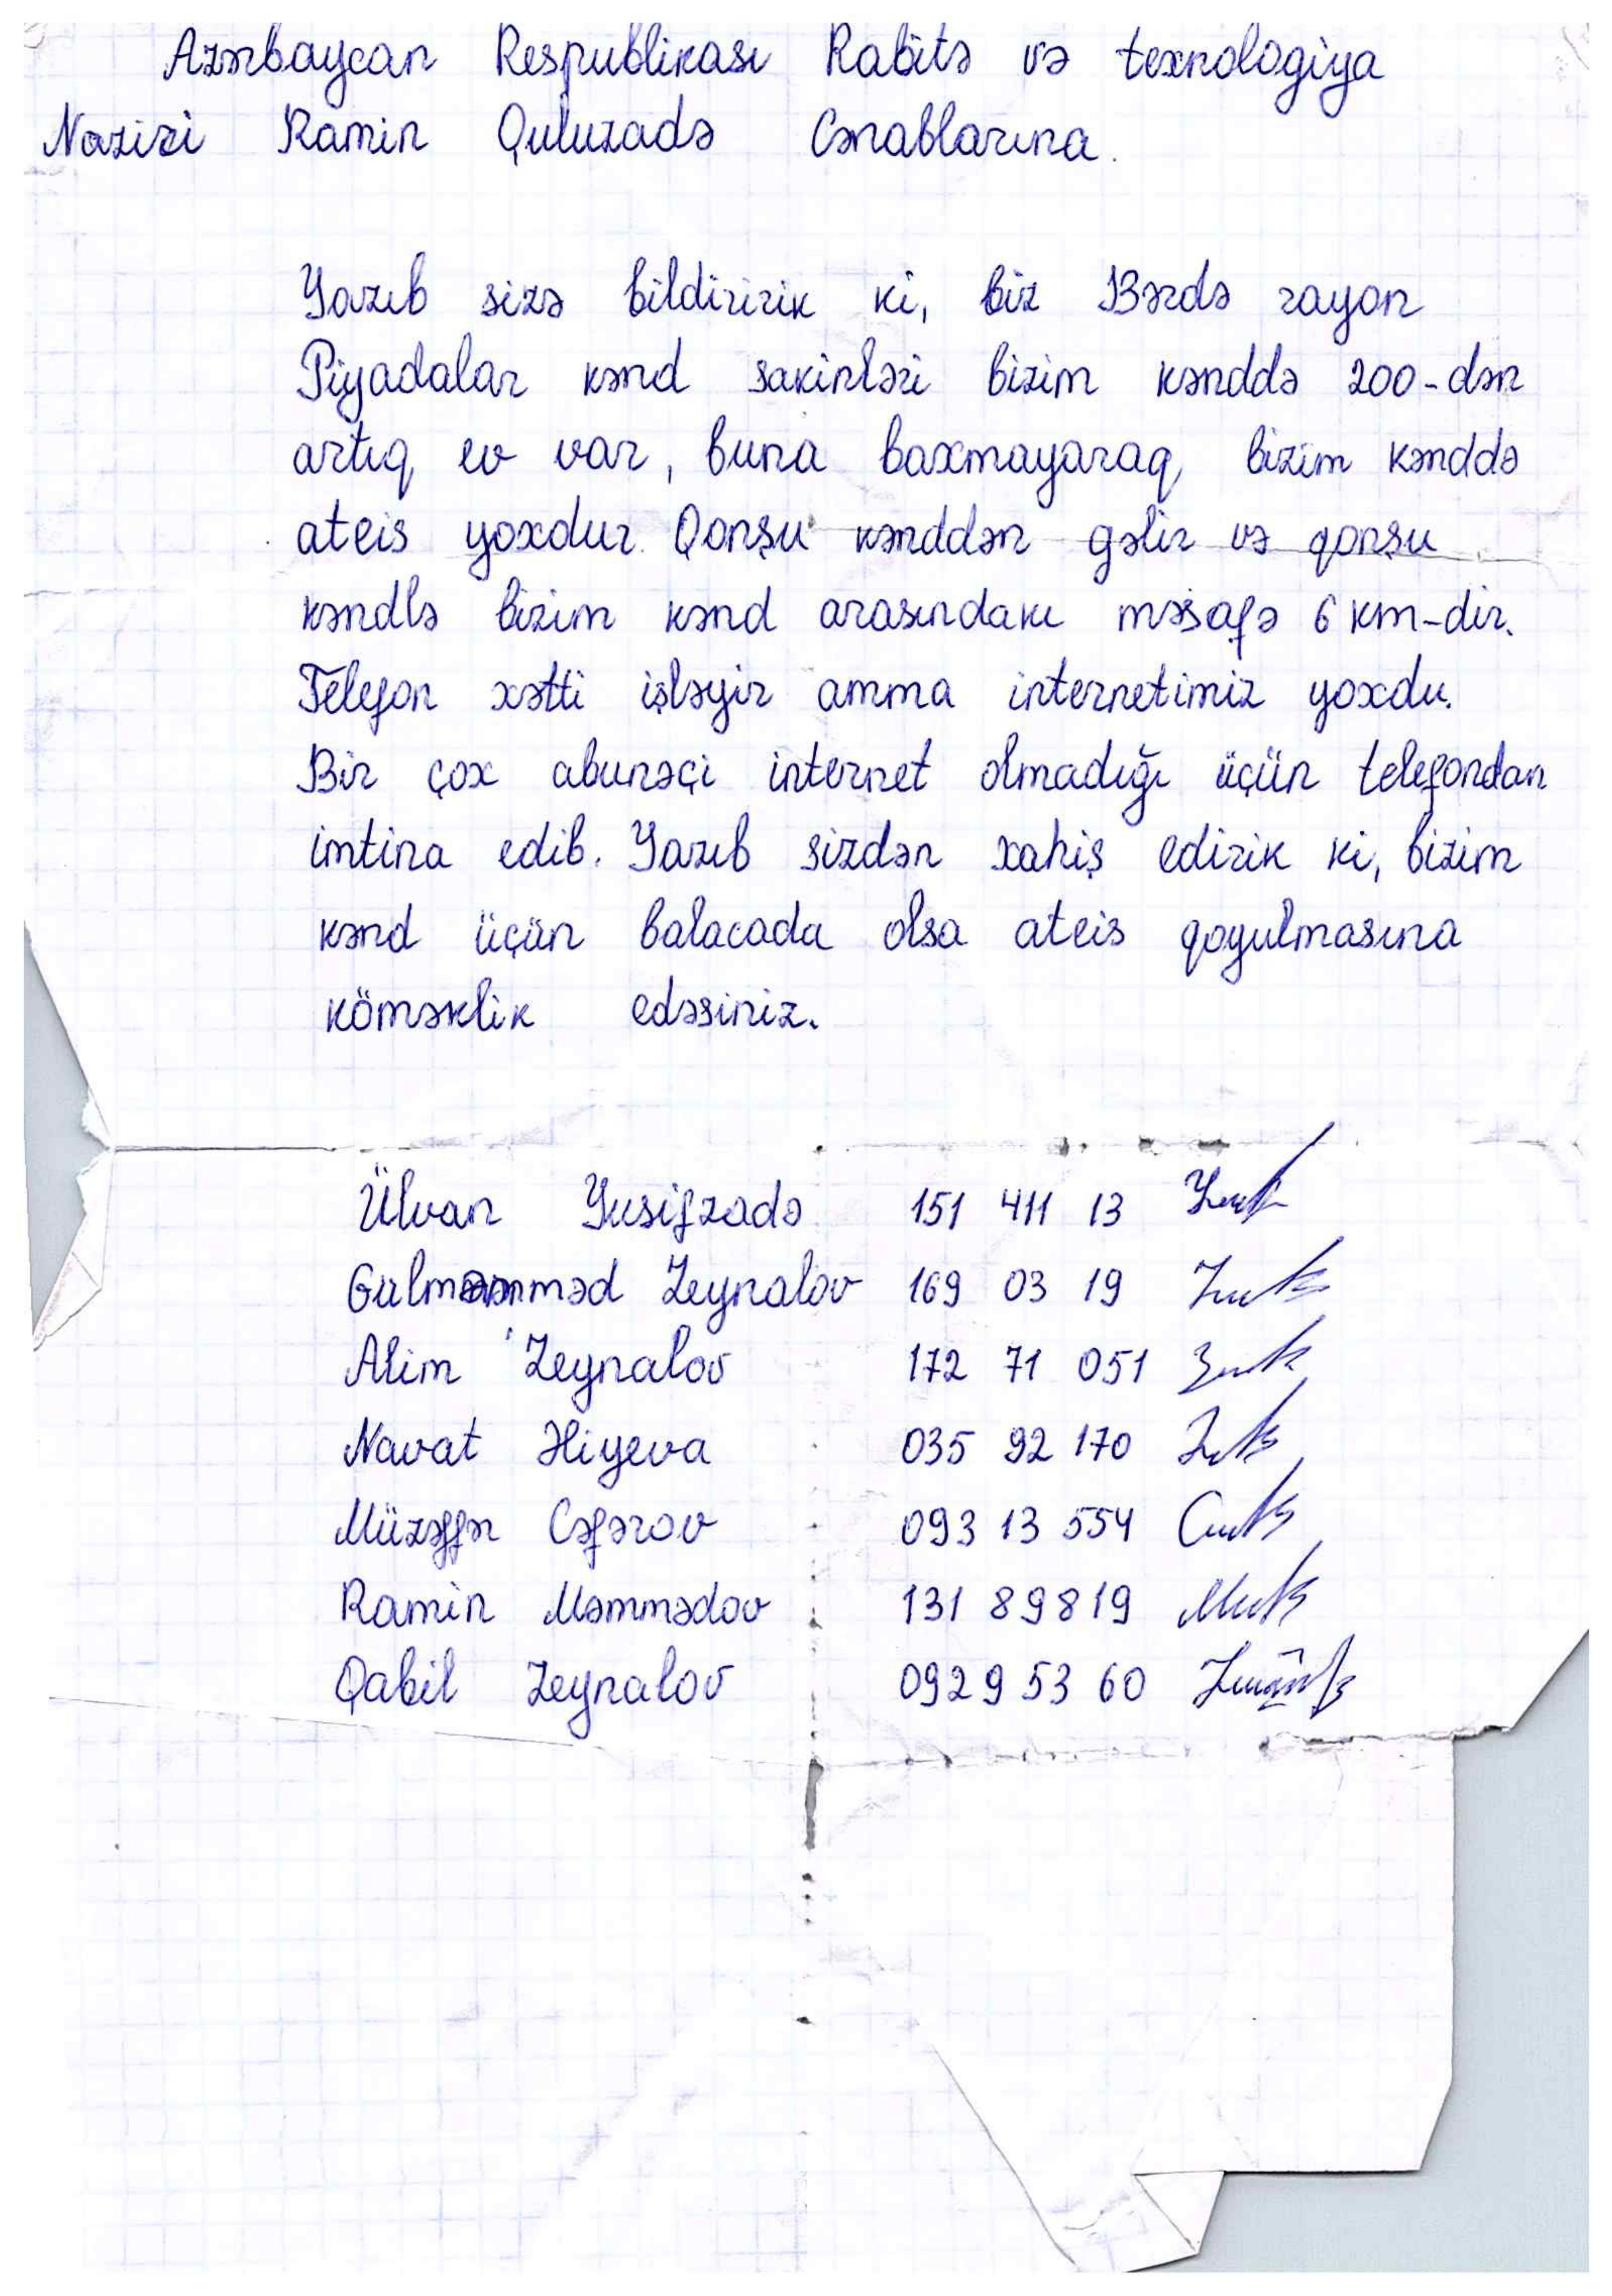 Azərbaycan Respublikası Rabitə və texnologiya
Naziri Ramin Quluzadə Cənablarına.
Yazıb sizə bildiririk ki, biz Bərdə rayon
Piyadalar kənd sakinləri bizim kənddə 200-dən
artıq ev var, buna baxmayaraq bizim kənddə
ateis yoxdur. Qonşu kənddən gəlir və qonşu
kəndlə bizim kənd arasındakı məsafə 6 km-dir.
Telefon xətti işləyir amma internetimiz yoxdu.
Bir çox abunəçi internet olmadığı üçün telefondan
imtina edib. Yazıb sizdən xahiş edirik ki, bizim
kənd üçün balacada olsa ateis qoyulmasına
köməklik edəsiniz.
Ülvan Yusifzadə 151 411 13
Gülməmməd Zeynalov 169 03 19
Alim Zeynalov 172 71 051
Navat Əliyeva 035 92 170
Müzəffər Cəfərov 093 13 554
Ramin Məmmədov 131 89819
Qabil Zeynalov 0929 53 60